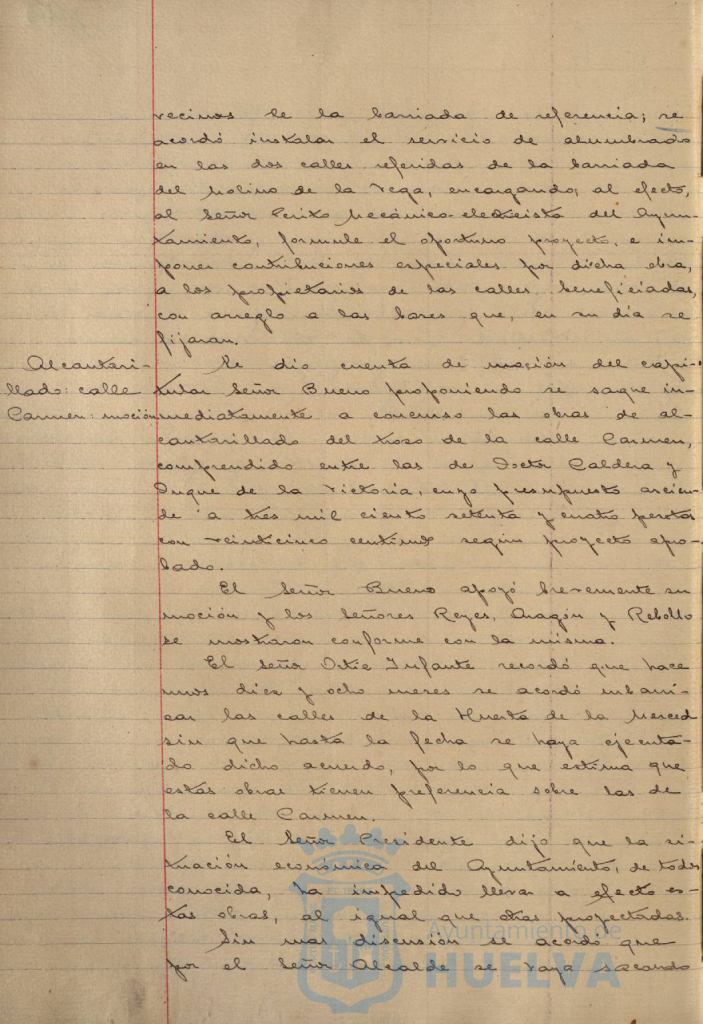 vecinos de la barriada de referencia; se
acordó instalar el servicio de alumbrado
en las dos calles referidas de la barriada
del Molino de la Vega, encargando, al efecto,
al Señor Perito Mecánico-electricista del Ayun-
tamiento, formule el oportuno proyecto, e im-
poner contribuciones especiales por dicha obra,
a los propietarios de las calles beneficiadas,
con arreglo a las bases que, en su día se
fijaran.
Alcantari-
llado: calle
Carmen: moción
Se dio cuenta de moción del capi-
tular Señor Bueno proponiendo se saque in-
mediatamente a concurso las obras de al-
cantarillado del trozo de la calle Carmen,
comprendido entre las de Doctor Caldera y
Duque de la Victoria, cuyo presupuesto ascien-
de a tres mil ciento setenta y cuatro pesetas
con veinticinco centimos según proyecto apro-
bado.
El Señor Bueno apoyó brevemente su
moción y los Señores Reyes, Aragón y Rebollo
se mostraron conforme con la misma.
El Señor Ortiz Infante recordó que hace
unos diez y ocho meses se acordó urbani-
zar las calles de la Huerta de la Merced
sin que hasta la fecha se haya ejecuta-
do dicho acuerdo, por lo que estima que
estas obras tienen preferencia sobre las de
la calle Carmen.
El Señor Presidente dijo que la si-
tuación económica del Ayuntamiento, de todos
conocida, ha impedido llevar a efecto es-
tas obras, al igual que otras proyectadas.
Sin mas discusión se acordó que
por el Señor Alcalde se vaya sacando
Ayuntamiento de
HUELVA